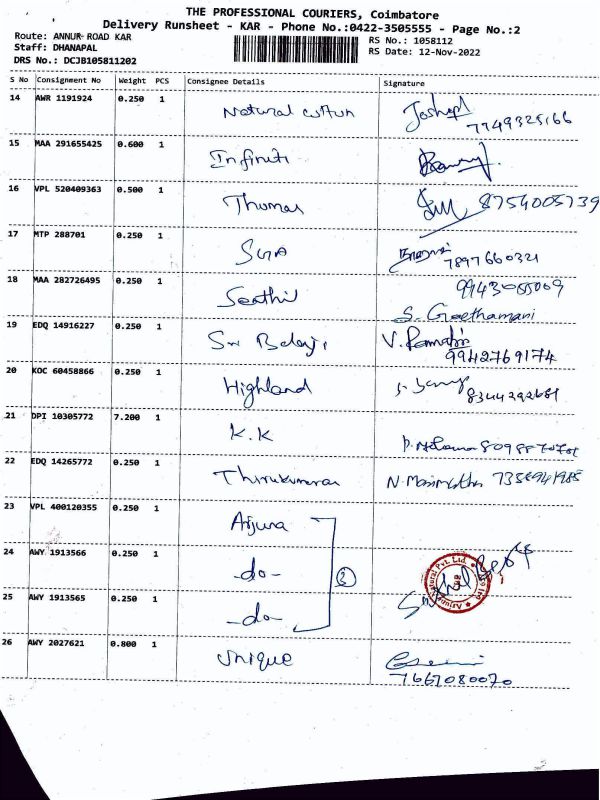 THE PROFESSIONAL COURIERS, Coimbatore
Delivery Runsheet - KAR - Phone No.:0422-3505555 - Page No.:2
Route: ANNUR ROAD KAR
Staff: DHANAPAL
DRS No.: DCJB105811202
RS No.: 1058112
RS Date: 12-Nov-2022
S No Consignment No Weight PCS Consignee Details Signature
14 AWR 1191924 0.250 1 Natural cotton Joshep
15 MAA 291655425 0.600 1 Infiniti
16 VPL 520409363 0.500 1 Thomas 8754005739
17 MTP 288701 0.250 1
7897660321
18 MAA 282726495 0.250 1 Senthil 9943055009
S. Geethamani
19 EDQ 14916227 0.250 1 Sri Balaji
9942769174
20 KOC 60458866 0.250 1 Highland 8344292681
21 DPI 10305772 7.200 1 K.K
22 EDQ 14265772 0.250 1 Thirukumaran
23 VPL 400120355 0.250 1 Arjuna
24 AWY 1913566 0.250 1 -do-
25 AWY 1913565 0.250 1 -do-
26 AWY 2027621 0.800 1 Unique
7667080070